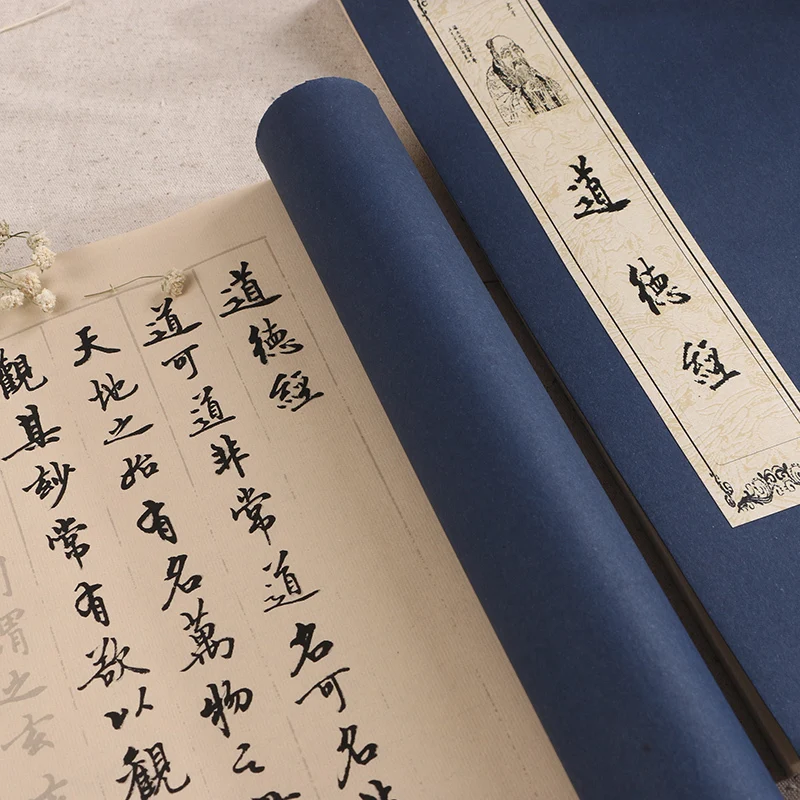 道德經
道德經
道可道非常道名可名非
天地之始有名萬物之母
觀其妙常有欲以觀
謂之玄